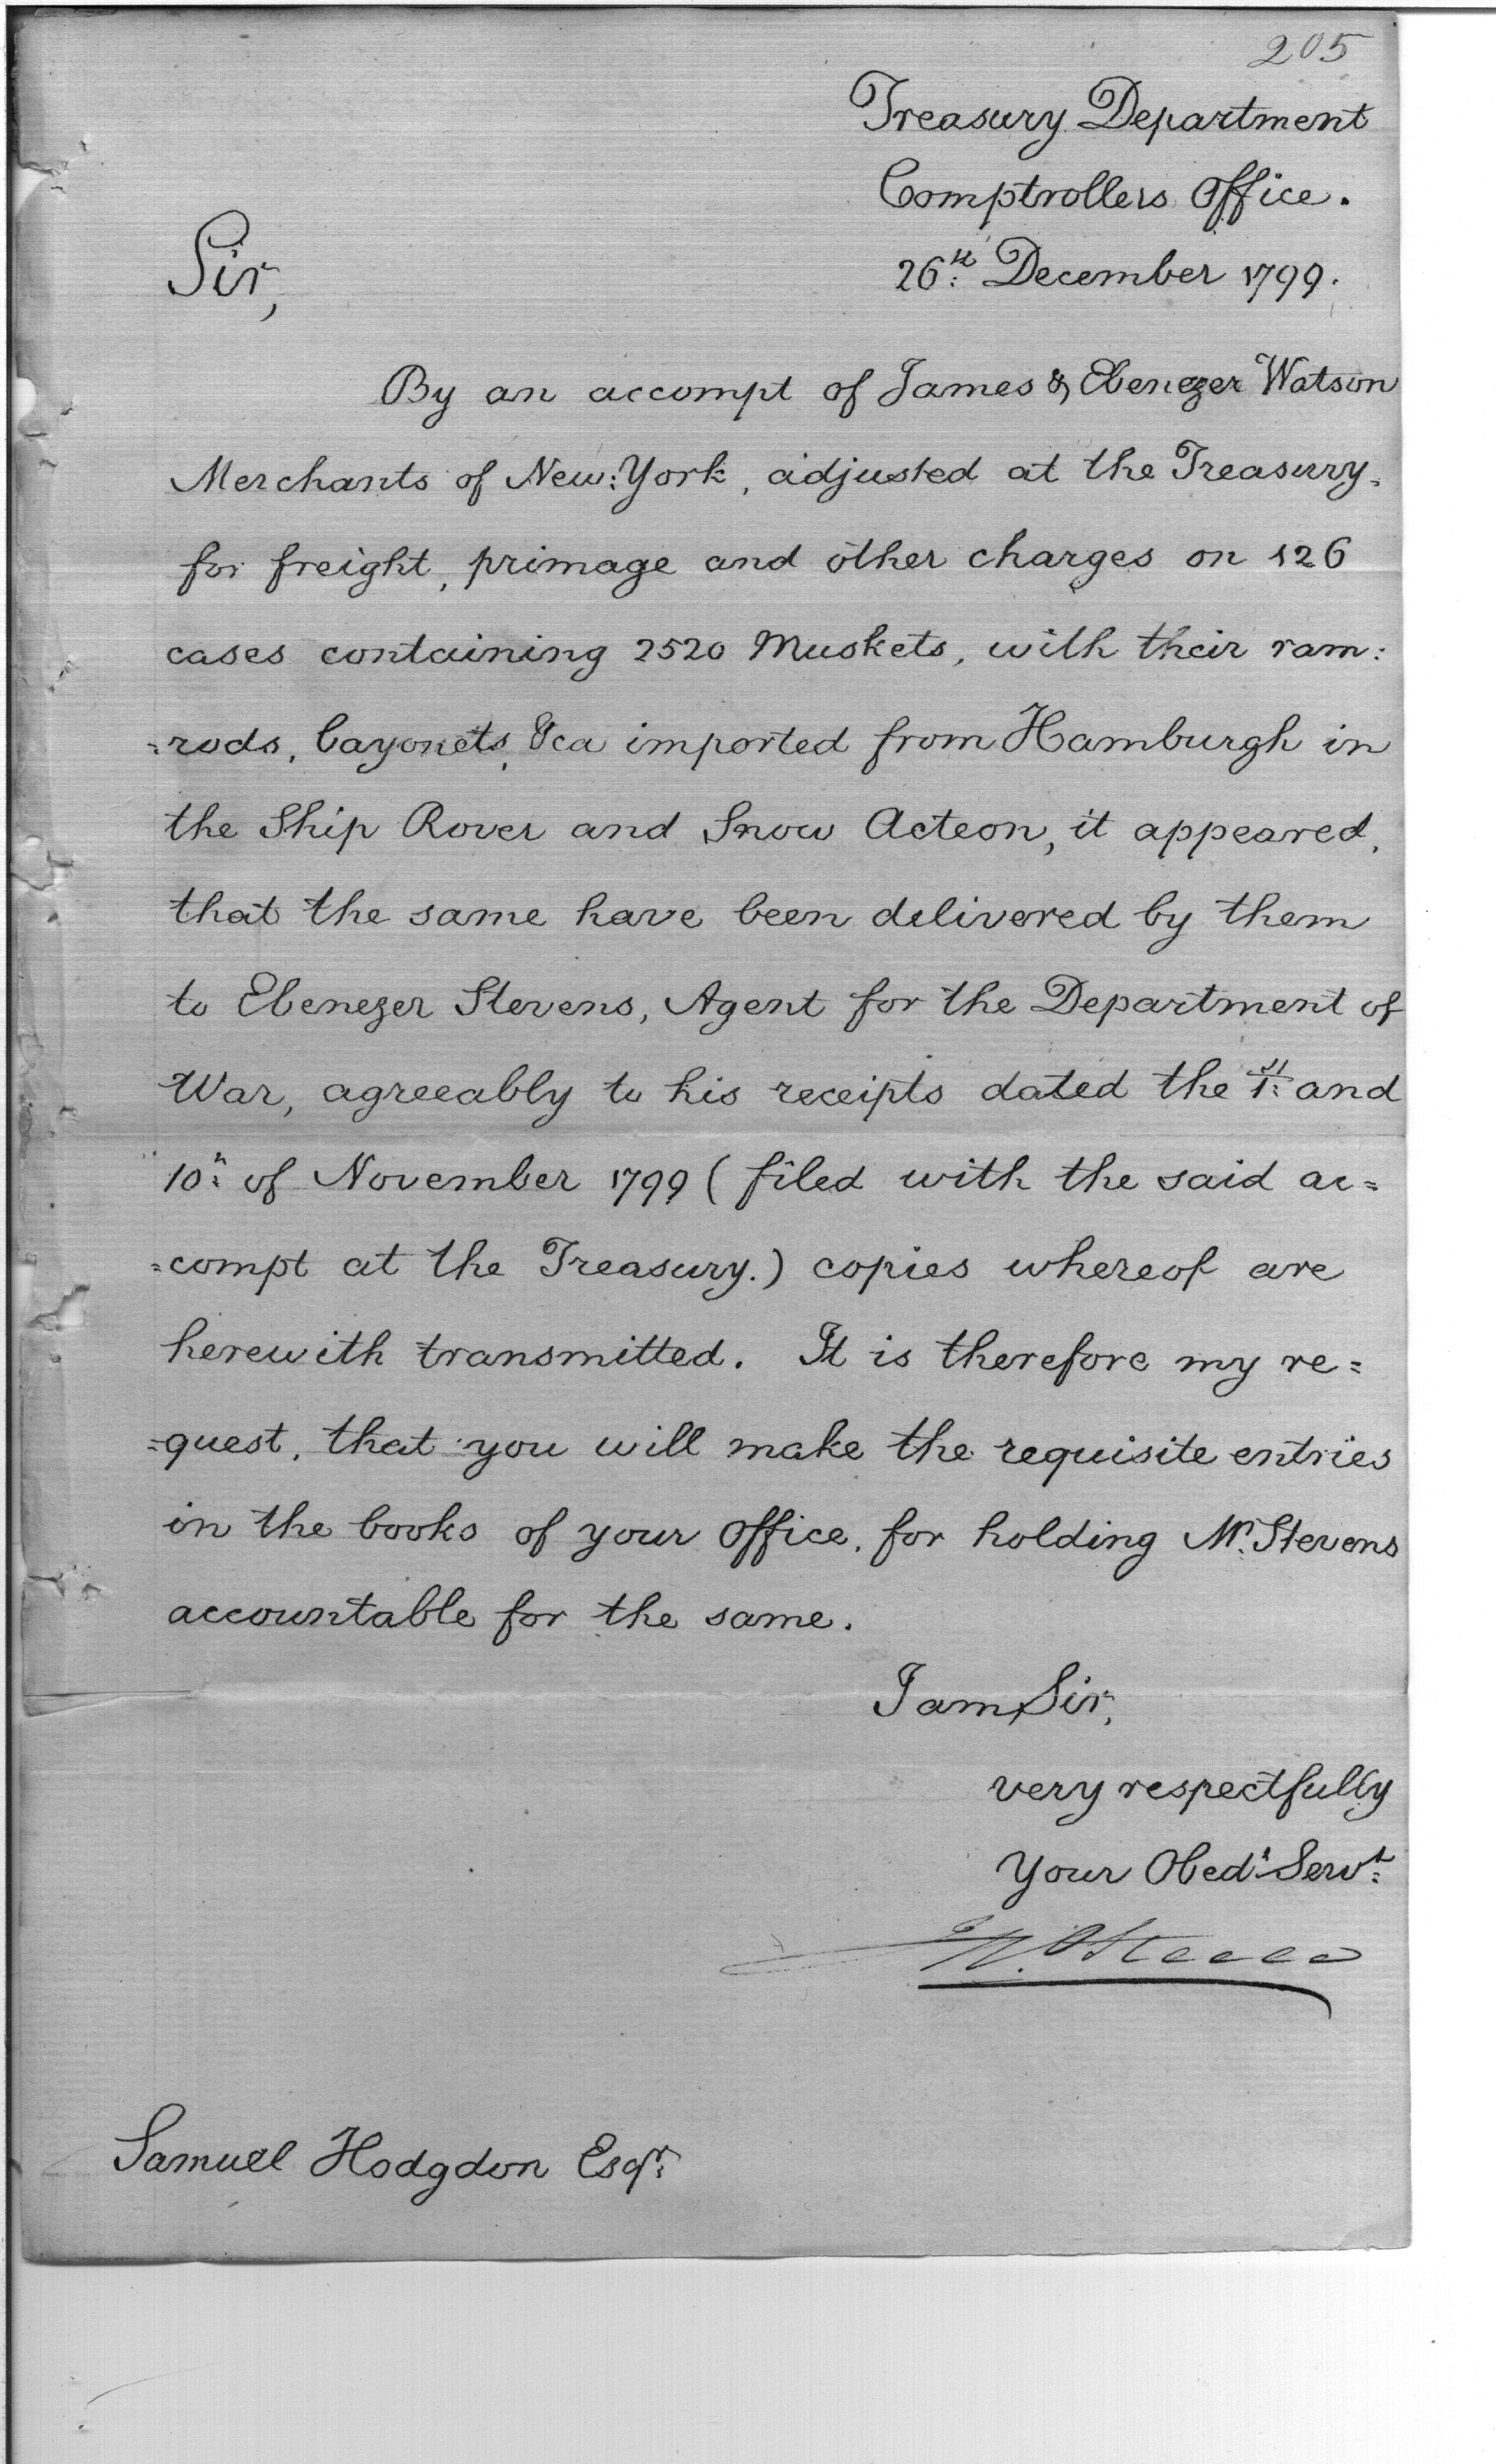 205
Treasury Department
Comptrollers Office.
26th: December 1799.
Sir,
By an accompt of James & Ebenezer Watson
Merchants of New:York, adjusted at the Treasury,
for freight, primage and other charges on 126
cases containing 2520 Muskets, with their ram:
=rods, bayonets, &ca imported from Hamburgh in
the Ship Rover and Snow Acteon, it appeared,
that the same have been delivered by them
to Ebenezer Stevens, Agent for the Department of
War, agreeably to his receipts dated the 1st: and
10th: of November 1799 (filed with the said ac=
=compt at the Treasury.) copies whereof are
herewith transmitted. It is therefore my re=
=quest, that you will make the requisite entries
in the books of your Office, for holding Mr. Stevens
accountable for the same.
I am, Sir,
very respectfully
Your Obedt Servt:
Jn. Steele
Samuel Hodgdon Esqr: